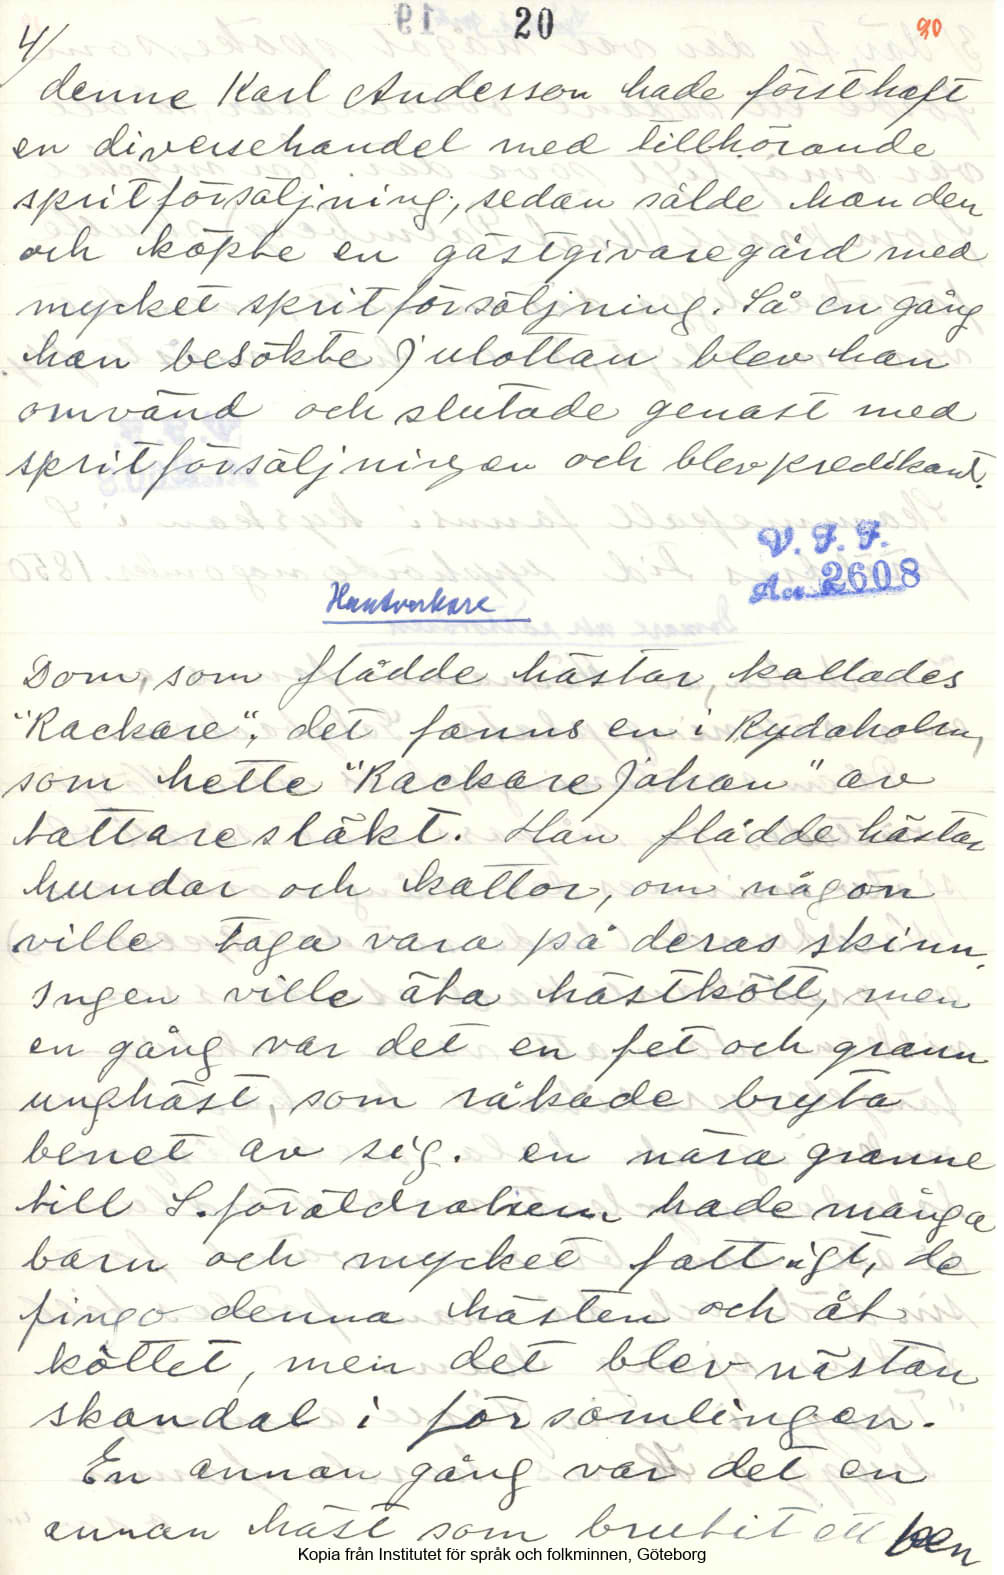 20
20
4/
denne Karl Andersson hade först haft
en diversehandel med tillhörande
spritförsäljning, sedan sålde han den
och köpte en gästgivaregård med
mycket spritförsäljning. Så en gång
han besökte julottan blev han
omvänd och slutade genast med
spritförsäljningen och blev predikant.
V. F. F.
Acc 2608
Hantverkare
Dom, som flådde hästar, kallades
"Rackare", det fanns en i Rydaholm,
som hette "Rackare Johan" av
tattaresläkt. Han flådde hästar
hundar och kattor, om någon
ville taga vara på deras skinn.
Ingen ville äta hästkött, men
en gång var det en fet och grann
unghäst, som råkade bryta
benet av sig. en nära granne
till S. föräldrahem hade många
barn och mycket fattigt, de
fingo denna hästen och åt
köttet, men det blev nästan
skandal i församlingen.
En annan gång var det en
annan häst som brutit ett ben
Kopia från Institutet för språk och folkminnen, Göteborg